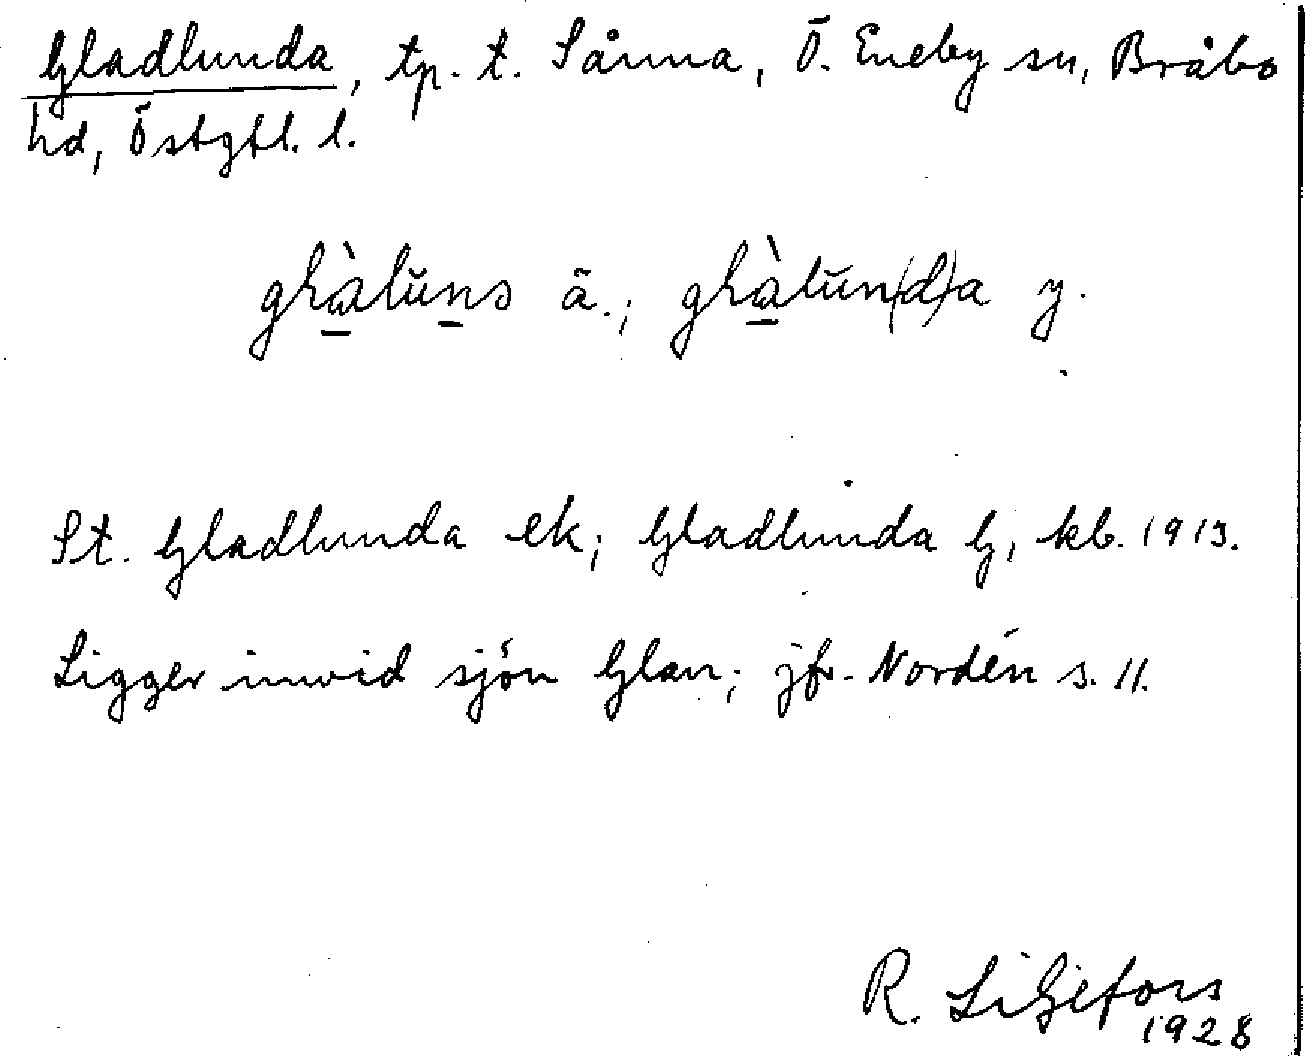 Gladlunda, tp. t. Sånna, Ö. Eneby sn, Bråbo
hd, Östgtl. l.
gƚàlŭns ä.; gƚàlŭn(d)a y.
St. Gladlunda ek; Gladlunda G, kb. 1913.
Ligger invid sjön Glan; jfr. Nordén s. 11.
R. Liljefors
1928